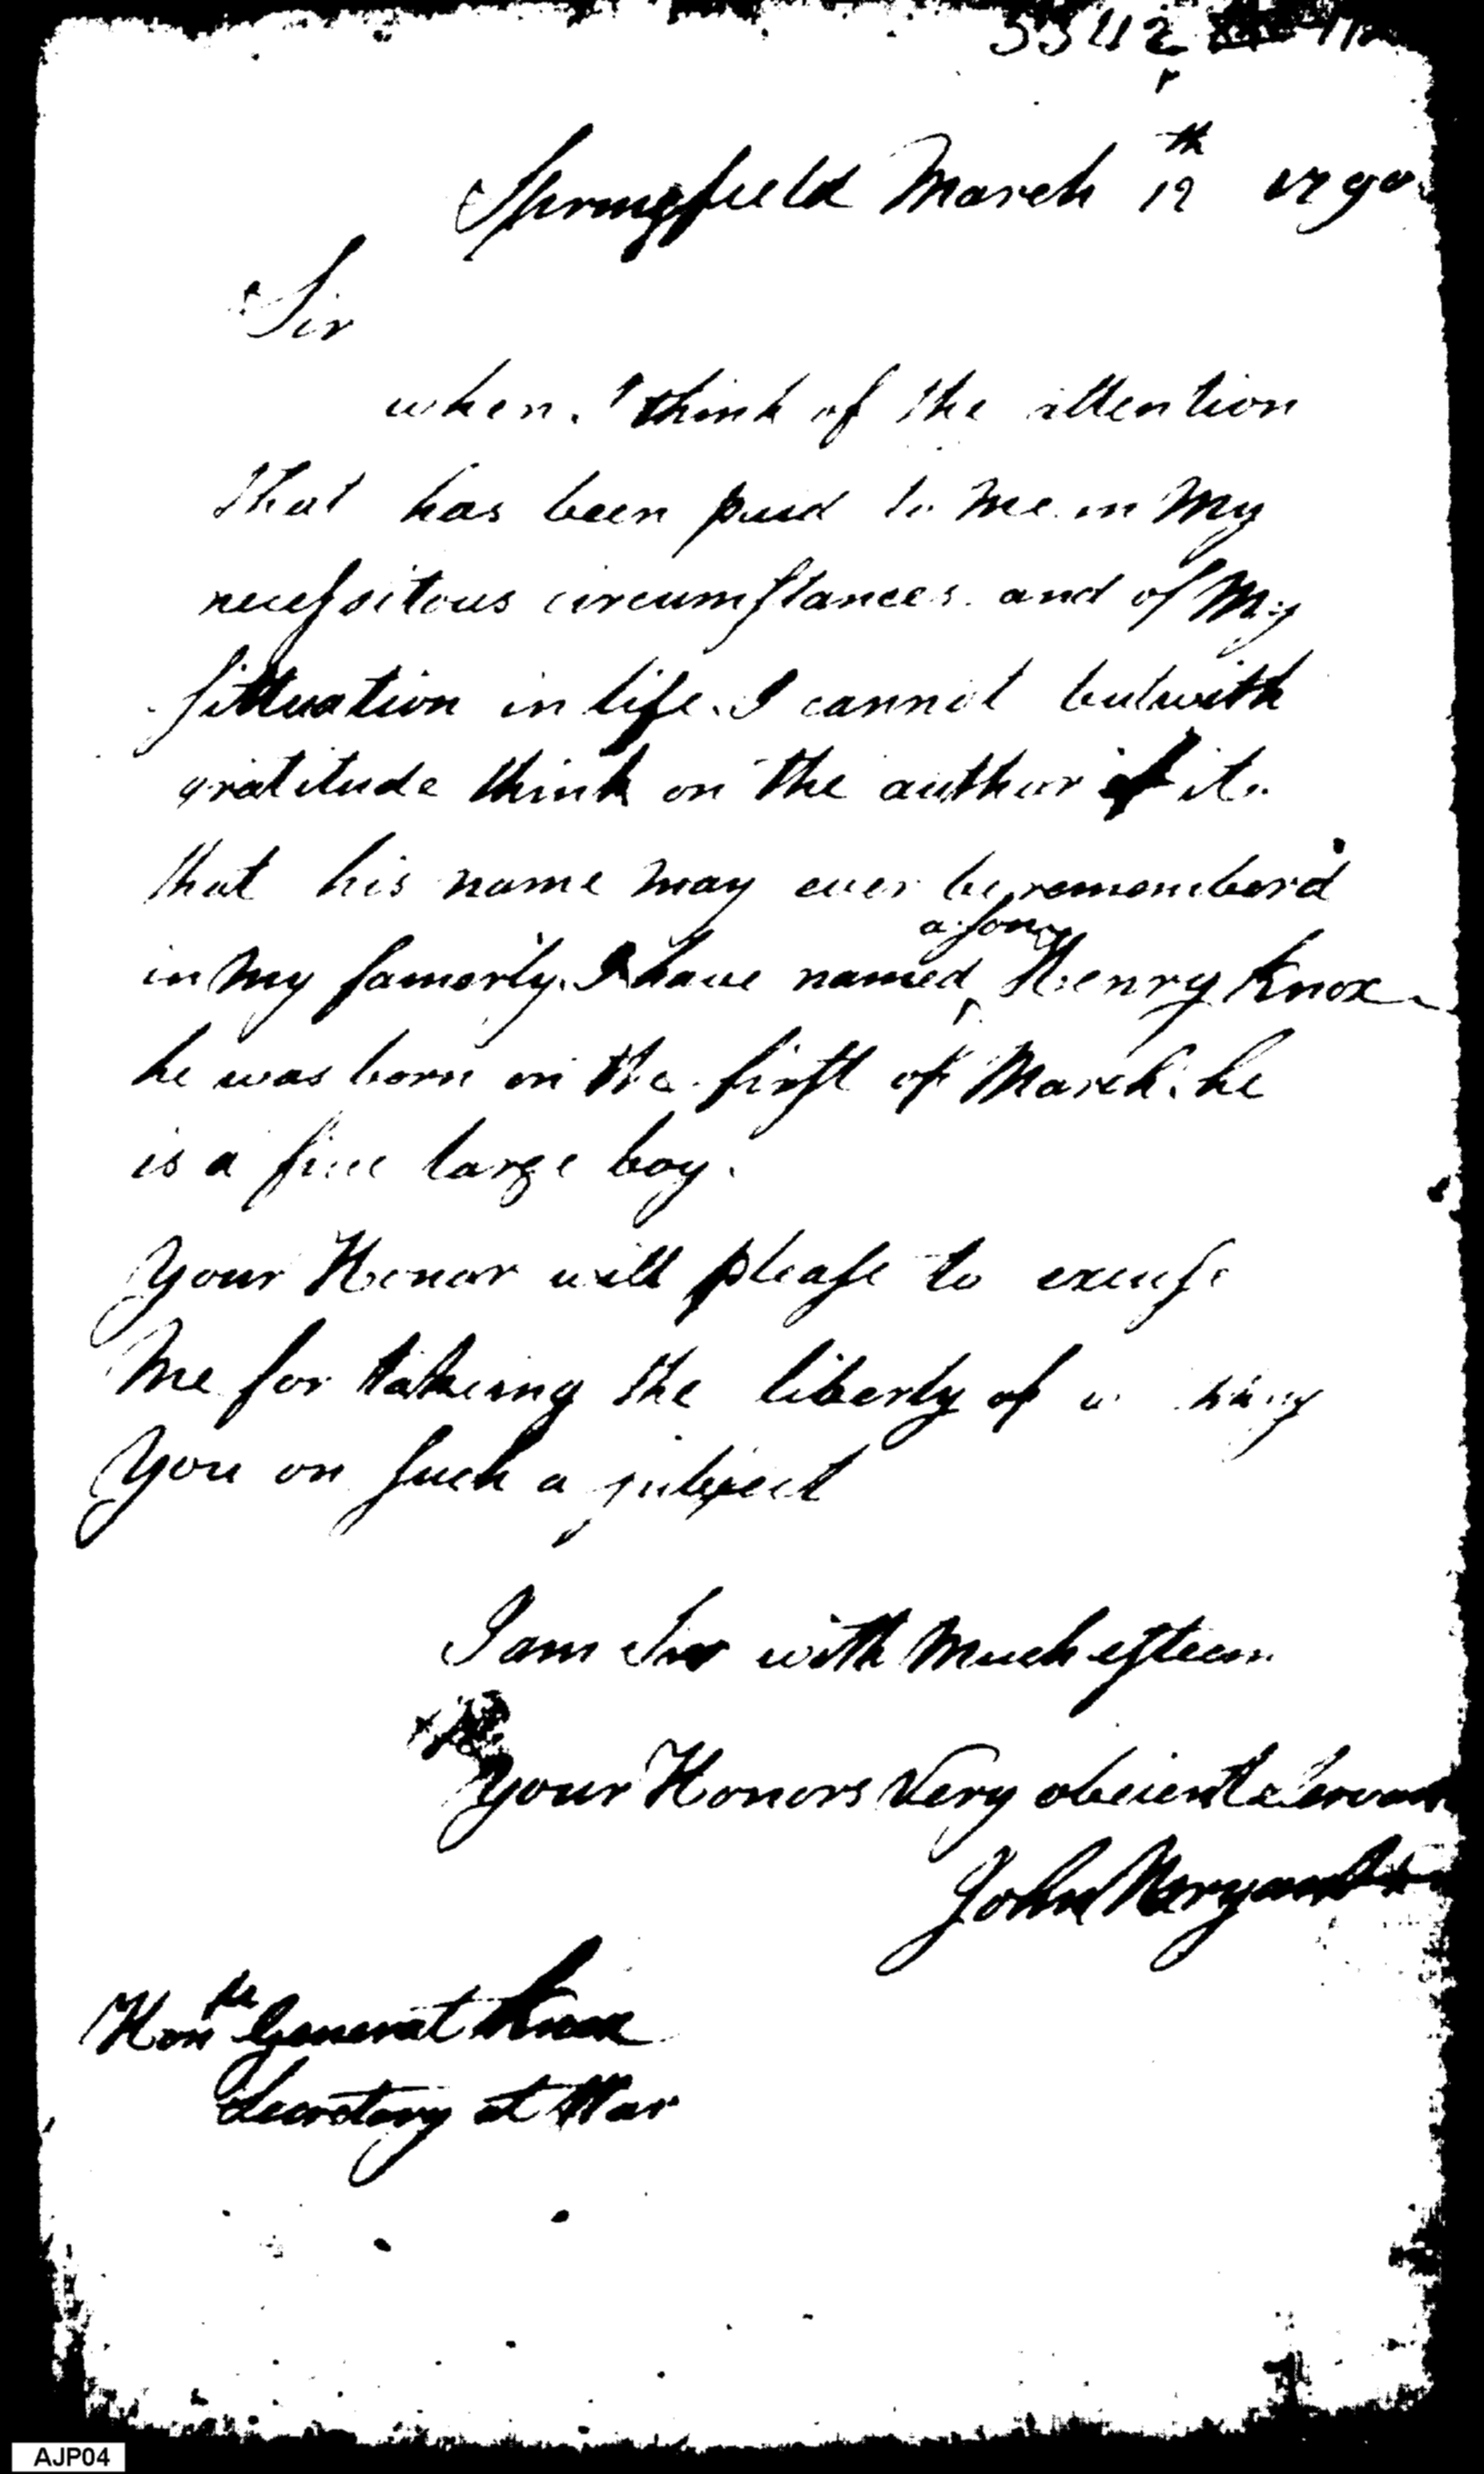 5542
Springfield March 12th 1790
Sir
when I think of the attention
that has been paid to me in My
necessitous circumstances and of My
sittuation in life. I cannot but with
gratitude think on the author of it.
that his name may ever be remember'd
in My famerly. I have named a son Henry Knox
he was born on the first of March. he
is a fine large boy.
Your Honor will please to excuse
Me for takeing the liberty of
You on such a subject
I am Sir with Much esteem
Your Honors Very obeient Servant
John
Honble General Knox
Secretary at War
AJP04